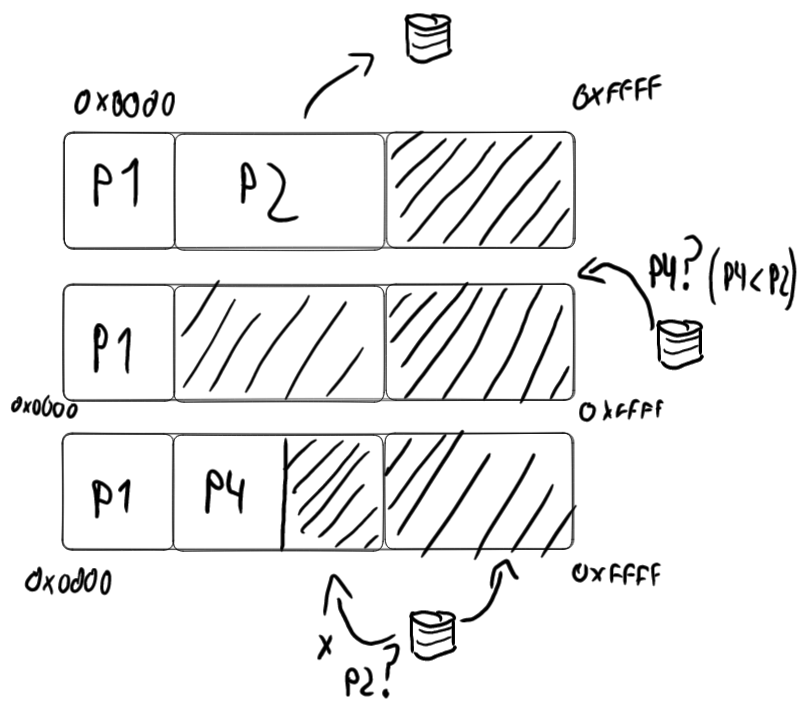 0x0000
0xFFFF
P1
P2
P4? (P4<P2)
P1
0x0000
0xFFFF
P1
P4
0x0000
0xFFFF
x
P2?